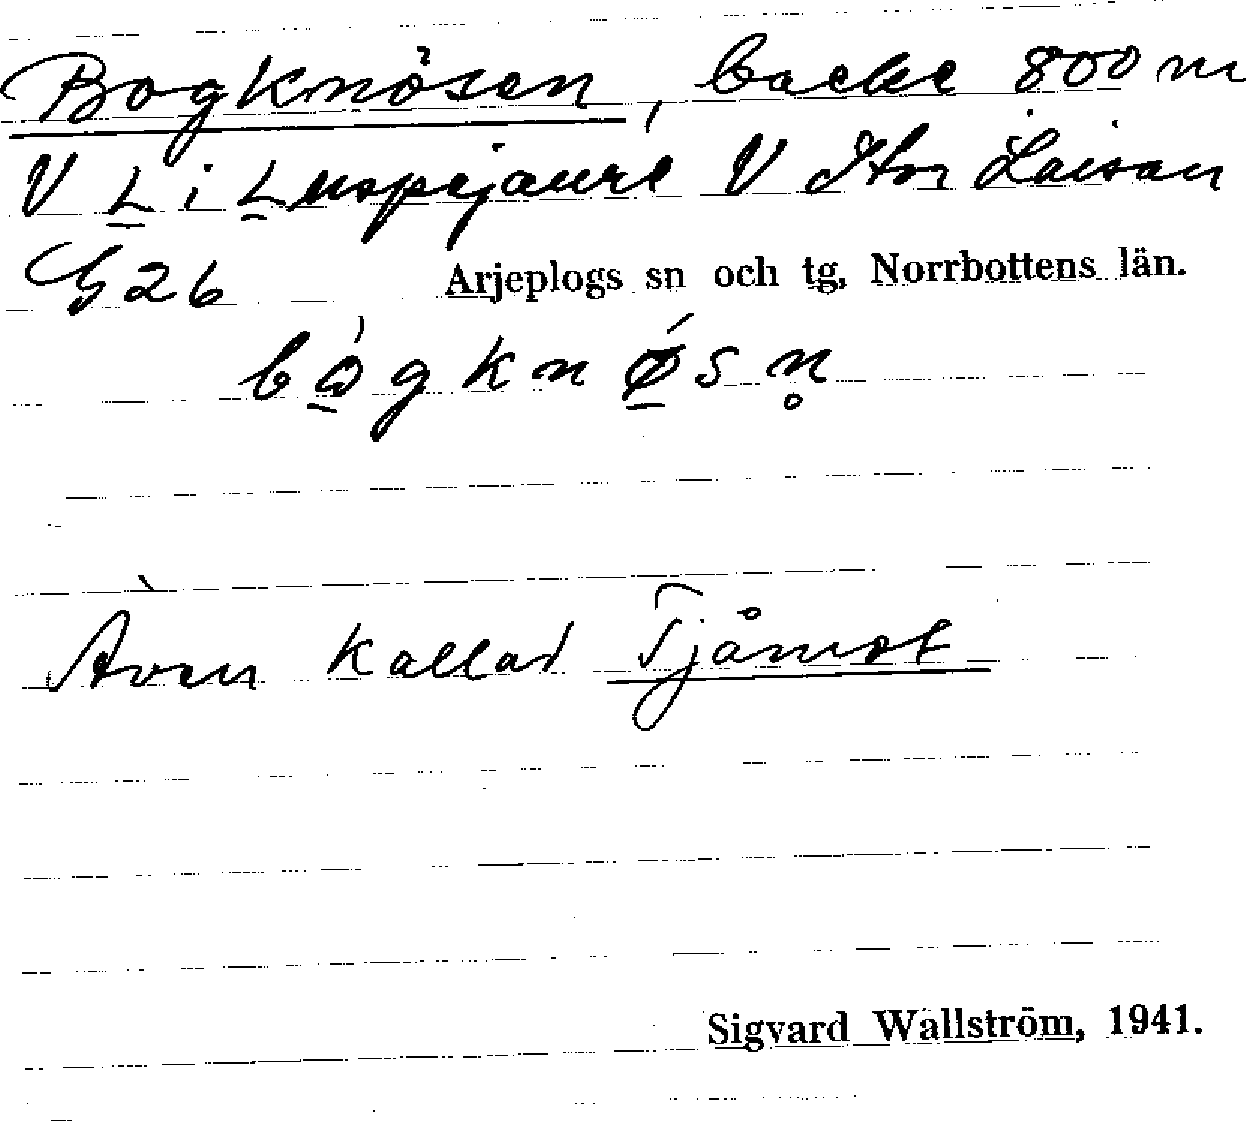 Bogknösen, backe 800 m
V L i Luspejaure V Stor Laisan
G 26 Arjeplogs sn och tg, Norrbottens län.
bògknǿsn̥
Även kallad Tjåmot
Sigvard Wallström, 1941.